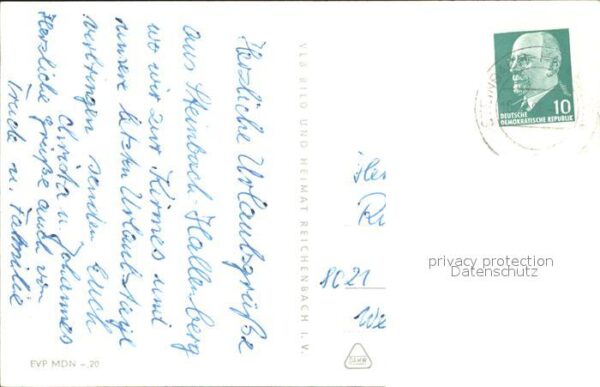 Herzliche Urlaubsgrüße
aus Steinbach-Hallenberg
wo wir zur Kirmes und
unsere letzten Urlaubstage
verbringen senden Euch
Christa u. Johannes
Herzliche Grüße auch von
Trude u. Familie
EVP MDN -,20
VEB BILD UND HEIMAT REICHENBACH I. V.
10
DEUTSCHE
DEMOKRATISCHE REPUBLIK
8021
privacy protection
Datenschutz